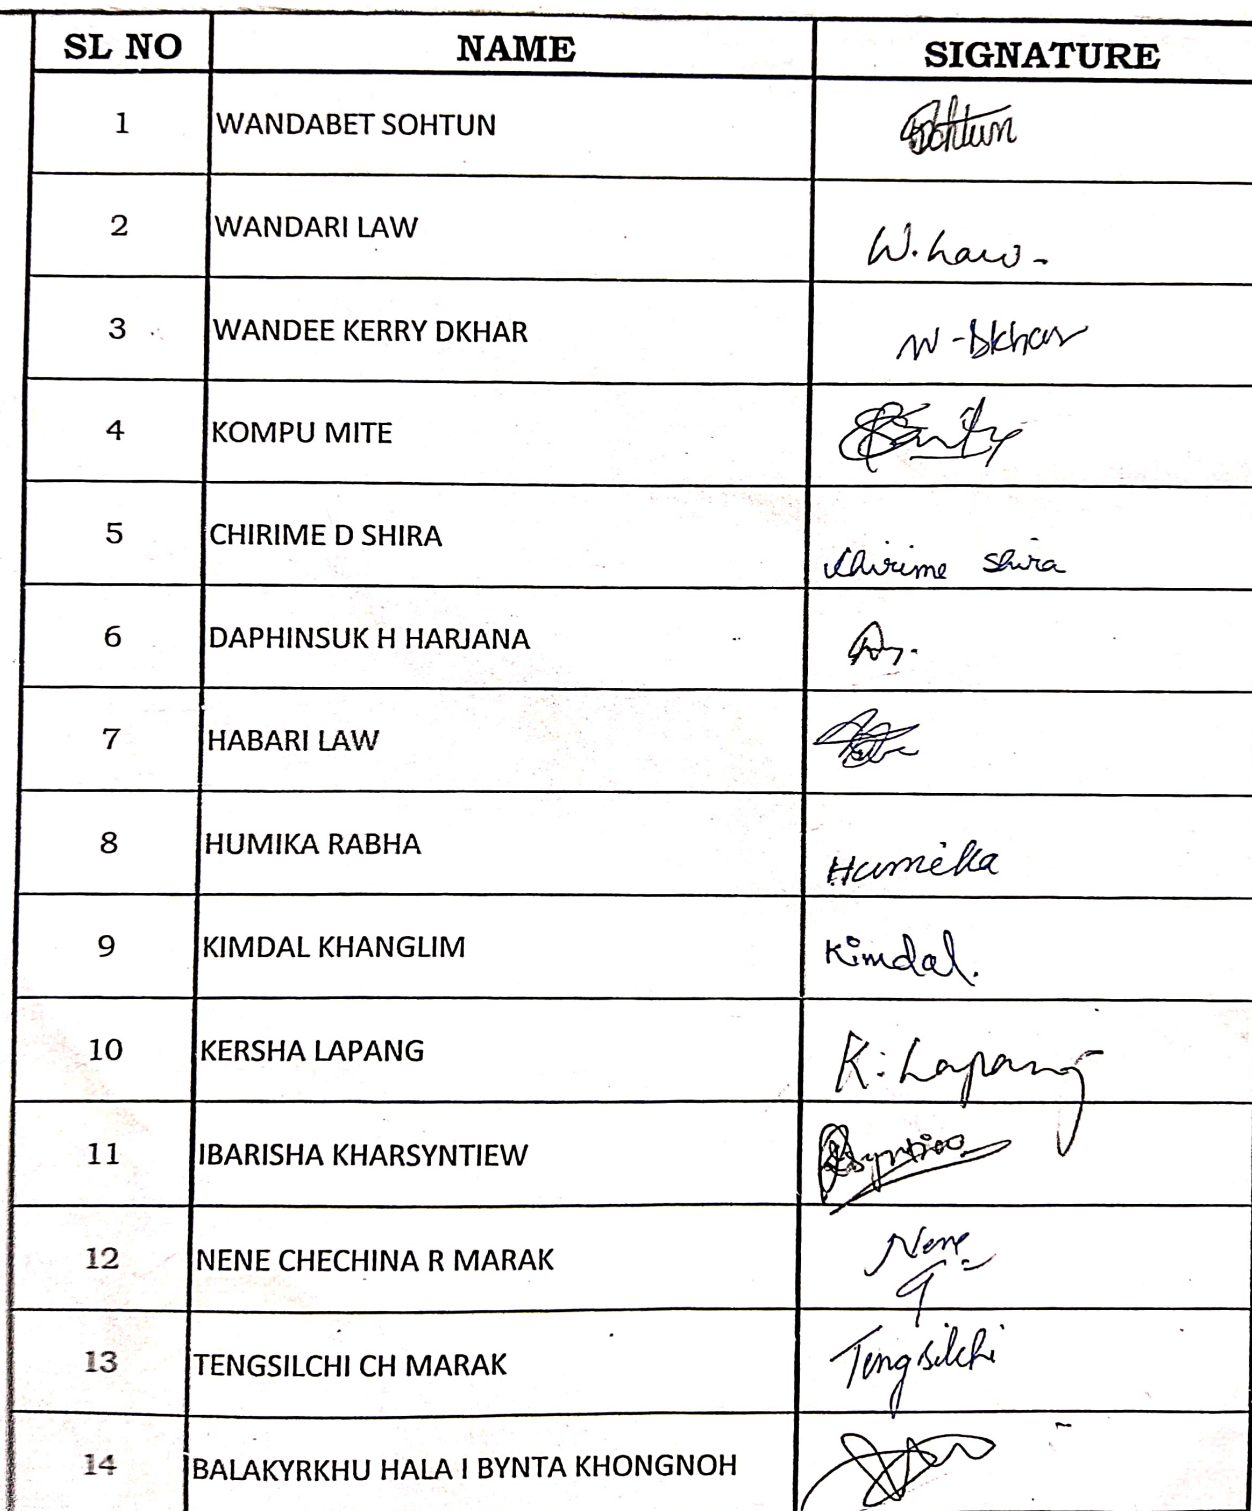 SL NO NAME SIGNATURE
1 WANDABET SOHTUN Sohtun
2 WANDARI LAW W. Law -
3 WANDEE KERRY DKHAR W - Dkhar
4 KOMPU MITE
5 CHIRIME D SHIRA Chirime Shira
6 DAPHINSUK H HARJANA
7 HABARI LAW
8 HUMIKA RABHA Humika
9 KIMDAL KHANGLIM Kimdal.
10 KERSHA LAPANG K: Lapang
11 IBARISHA KHARSYNTIEW
12 NENE CHECHINA R MARAK Nene
13 TENGSILCHI CH MARAK Tengsilchi
14 BALAKYRKHU HALA I BYNTA KHONGNOH